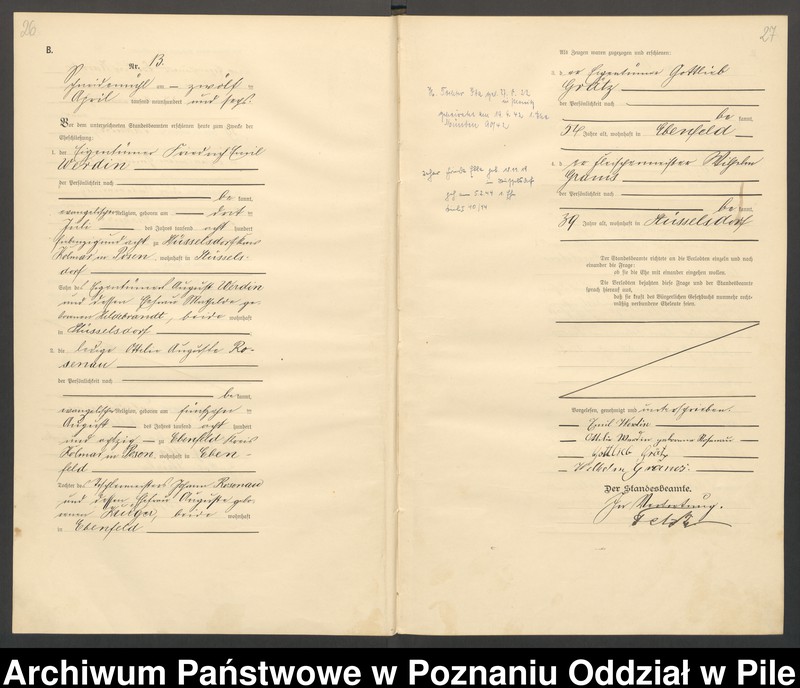 26
B.
Nr. 13.
Schneidemühl am zwölften
April tausend neunhundert und sechs
Vor dem unterzeichneten Standesbeamten erschienen heute zum Zwecke der
Eheschließung:
1. der Eigentümer Friedrich Emil
Werdin
der Persönlichkeit nach
be kannt,
evangelischer Religion, geboren am
Juli des Jahres tausend acht hundert
siebzig und acht zu Küsselsdorf Kreis
Kolmar in Posen, wohnhaft in Küssels-
dorf
Sohn des Eigentümers August Werdin
und dessen Ehefrau ge-
borenen Hildebrandt, beide wohnhaft
in Küsselsdorf
2. die ledige Ottilie Auguste Ro-
senau
der Persönlichkeit nach
be kannt,
evangelischer Religion, geboren am fünfzehn
August des Jahres tausend acht hundert
und achtzig zu Ebenfeld Kreis
Kolmar in Posen, wohnhaft in Eben-
feld
Tochter des Tischlermeisters Johann Rosenau
und dessen Ehefrau Auguste gebo-
renen Krüger, beide wohnhaft
in Ebenfeld
27
Als Zeugen waren zugezogen und erschienen:
3. der Eigentümer Gottlieb
Grätz
der Persönlichkeit nach
be kannt,
54 Jahre alt, wohnhaft in Ebenfeld
4. der Fleischermeister Wilhelm
Grams
der Persönlichkeit nach
be kannt,
39 Jahre alt, wohnhaft in Küsselsdorf
Der Standesbeamte richtete an die Verlobten einzeln und nach
einander die Frage:
ob sie die Ehe mit einander eingehen wollen.
Die Verlobten bejahten diese Frage und der Standesbeamte
sprach hierauf aus,
daß sie kraft des Bürgerlichen Gesetzbuchs nunmehr recht-
mäßig verbundene Eheleute seien.
Vorgelesen, genehmigt und unterschrieben.
Emil Werdin
Ottilie Werdin geborene Rosenau
Gottlieb Grätz
Wilhelm Grams.
Der Standesbeamte.
In Vertretung.
Archiwum Państwowe w Poznaniu Oddział w Pile